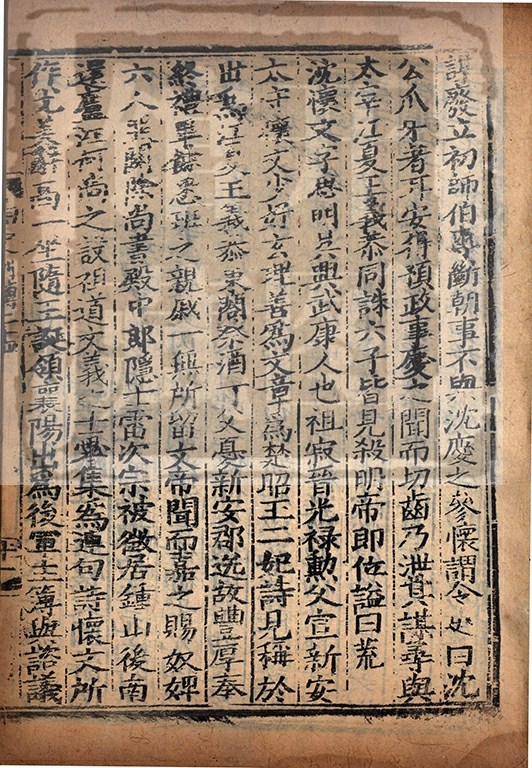 謀廢立初師伯專斷朝事不與沈慶之參懷謂令史曰沈
公爪牙者耳安得預政事慶之聞而切齒乃泄其謀尋與
太宰江夏王義恭同誅六子皆見殺明帝即位謚曰荒
沈懷文字思明吳興武康人也祖寂晉光祿勳父宣新安
太守懷文少好玄理善爲文章爲楚昭王二妃詩見稱於
世爲江夏王義恭東閣祭酒丁父憂新安郡送故豐厚奉
終禮畢餘悉班之親戚一無所留文帝聞而嘉之賜奴婢
六人服闋除尚書殿中郎隱士雷次宗被徵居鍾山後南
還廬江何尚之設祖道文義之士畢集爲連句詩懷文所
作尤美辭高一坐隨王誕領襄陽出爲後軍主簿與諮議